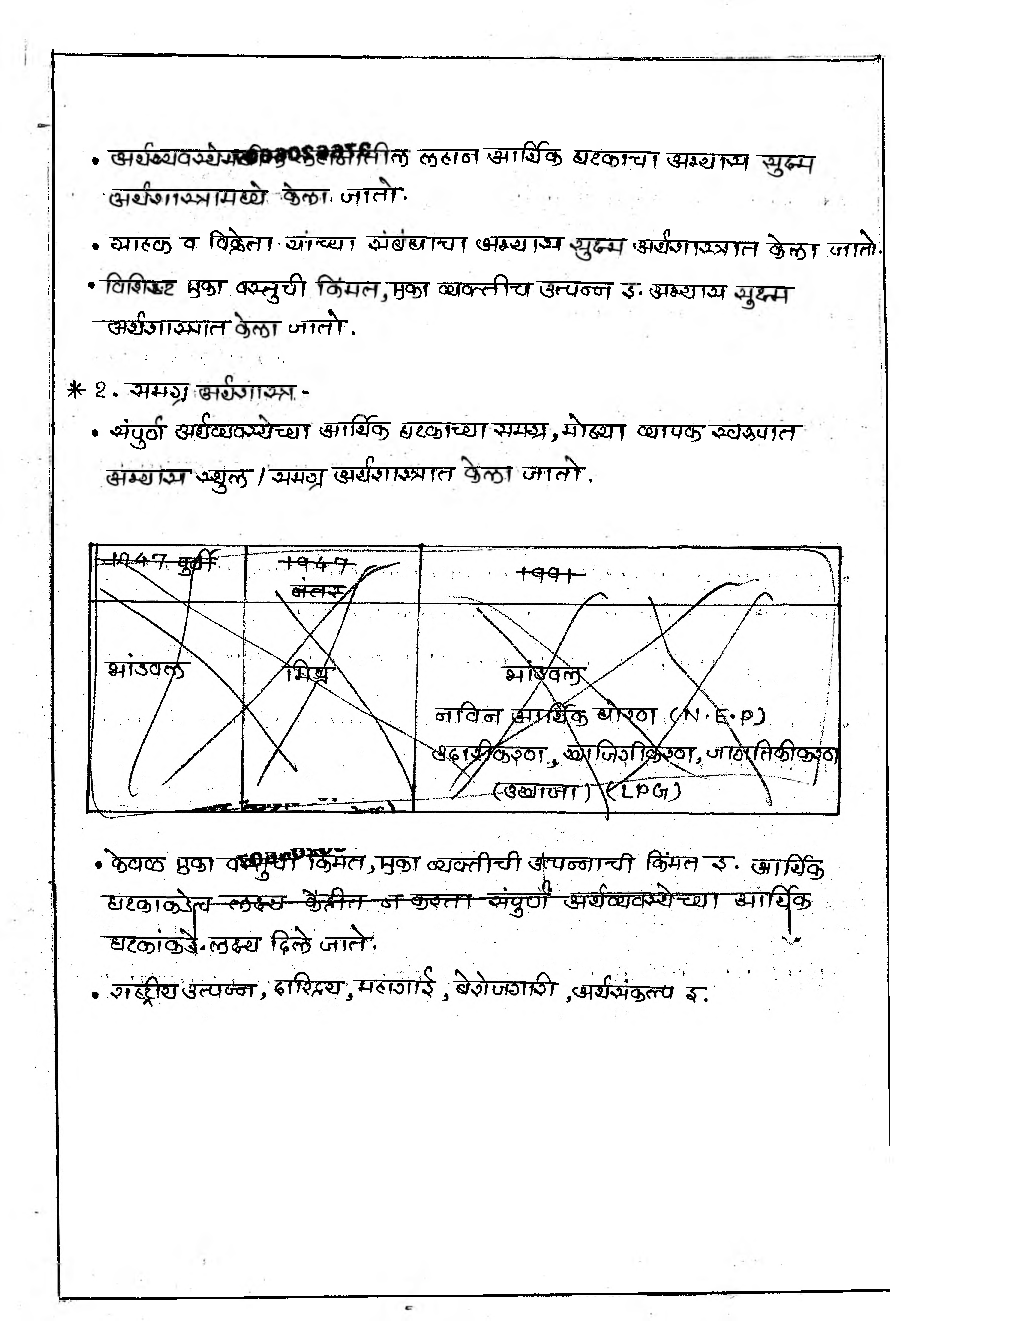 • अर्थव्यवस्थेमधील लहानातील लहान आर्थिक घटकाचा अभ्यास सुक्ष्म
अर्थशास्त्रामध्ये केला जातो.
• ग्राहक व विक्रेता यांच्या संबंधाचा अभ्यास सुक्ष्म अर्थशास्त्रात केला जातो.
• विशिष्ट एका वस्तुची किंमत, एका व्यक्तीच उत्पन्न इ. अभ्यास सुक्ष्म
अर्थशास्त्रात केला जातो.
* 2. समग्र अर्थशास्त्र -
• संपुर्ण अर्थव्यवस्थेच्या आर्थिक घटकाच्या समग्र, मोठ्या व्यापक स्वरुपात
अभ्यास स्थुल / समग्र अर्थशास्त्रात केला जातो.
1947 पुर्वी
1947 नंतर
1991
भांडवल
मिश्र
भांडवल
नविन आर्थिक धोरण (N.E.P)
उदारीकरण, खाजगीकरण, जागतिकीकरण
(उखाजा) (LPG)
• केवळ एका वस्तुची किंमत, एका व्यक्तीची उत्पन्नाची किंमत इ. आर्थिक
घटकाकडेच लक्ष्य केंद्रीत न करता संपुर्ण अर्थव्यवस्थेच्या आर्थिक
घटकांकडे लक्ष्य दिले जाते.
• राष्ट्रीय उत्पन्न, दारिद्रय, महागाई, बेरोजगारी, अर्थसंकल्प इ.